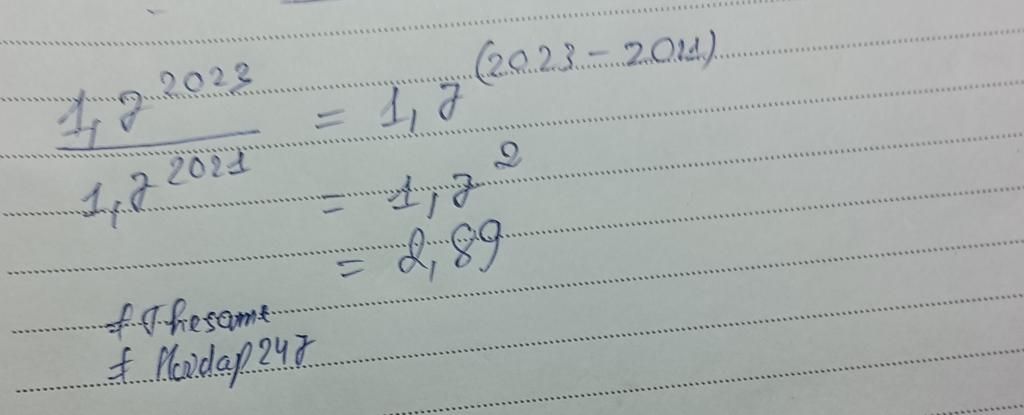 1,7^2023 / 1,7^2021 = 1,7^(2023 - 2011)
= 1,7^2
= 2,89
# Thesame